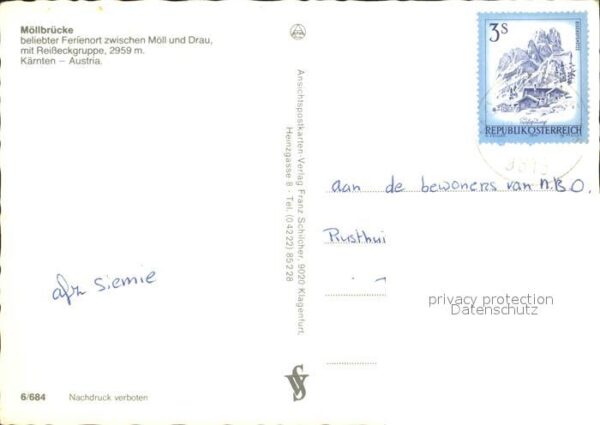 Möllbrücke
beliebter Ferienort zwischen Möll und Drau,
mit Reißeckgruppe, 2959 m.
Kärnten – Austria.
afz Siemie
6/684 Nachdruck verboten
Ansichtspostkarten-Verlag Franz Schilcher, 9020 Klagenfurt,
Heinzgasse 8 - Tel. (0 42 22) 85 2 28
3 S
REPUBLIK ÖSTERREICH
aan de bewoners van N.B.O.
Rusthui
privacy protection
Datenschutz